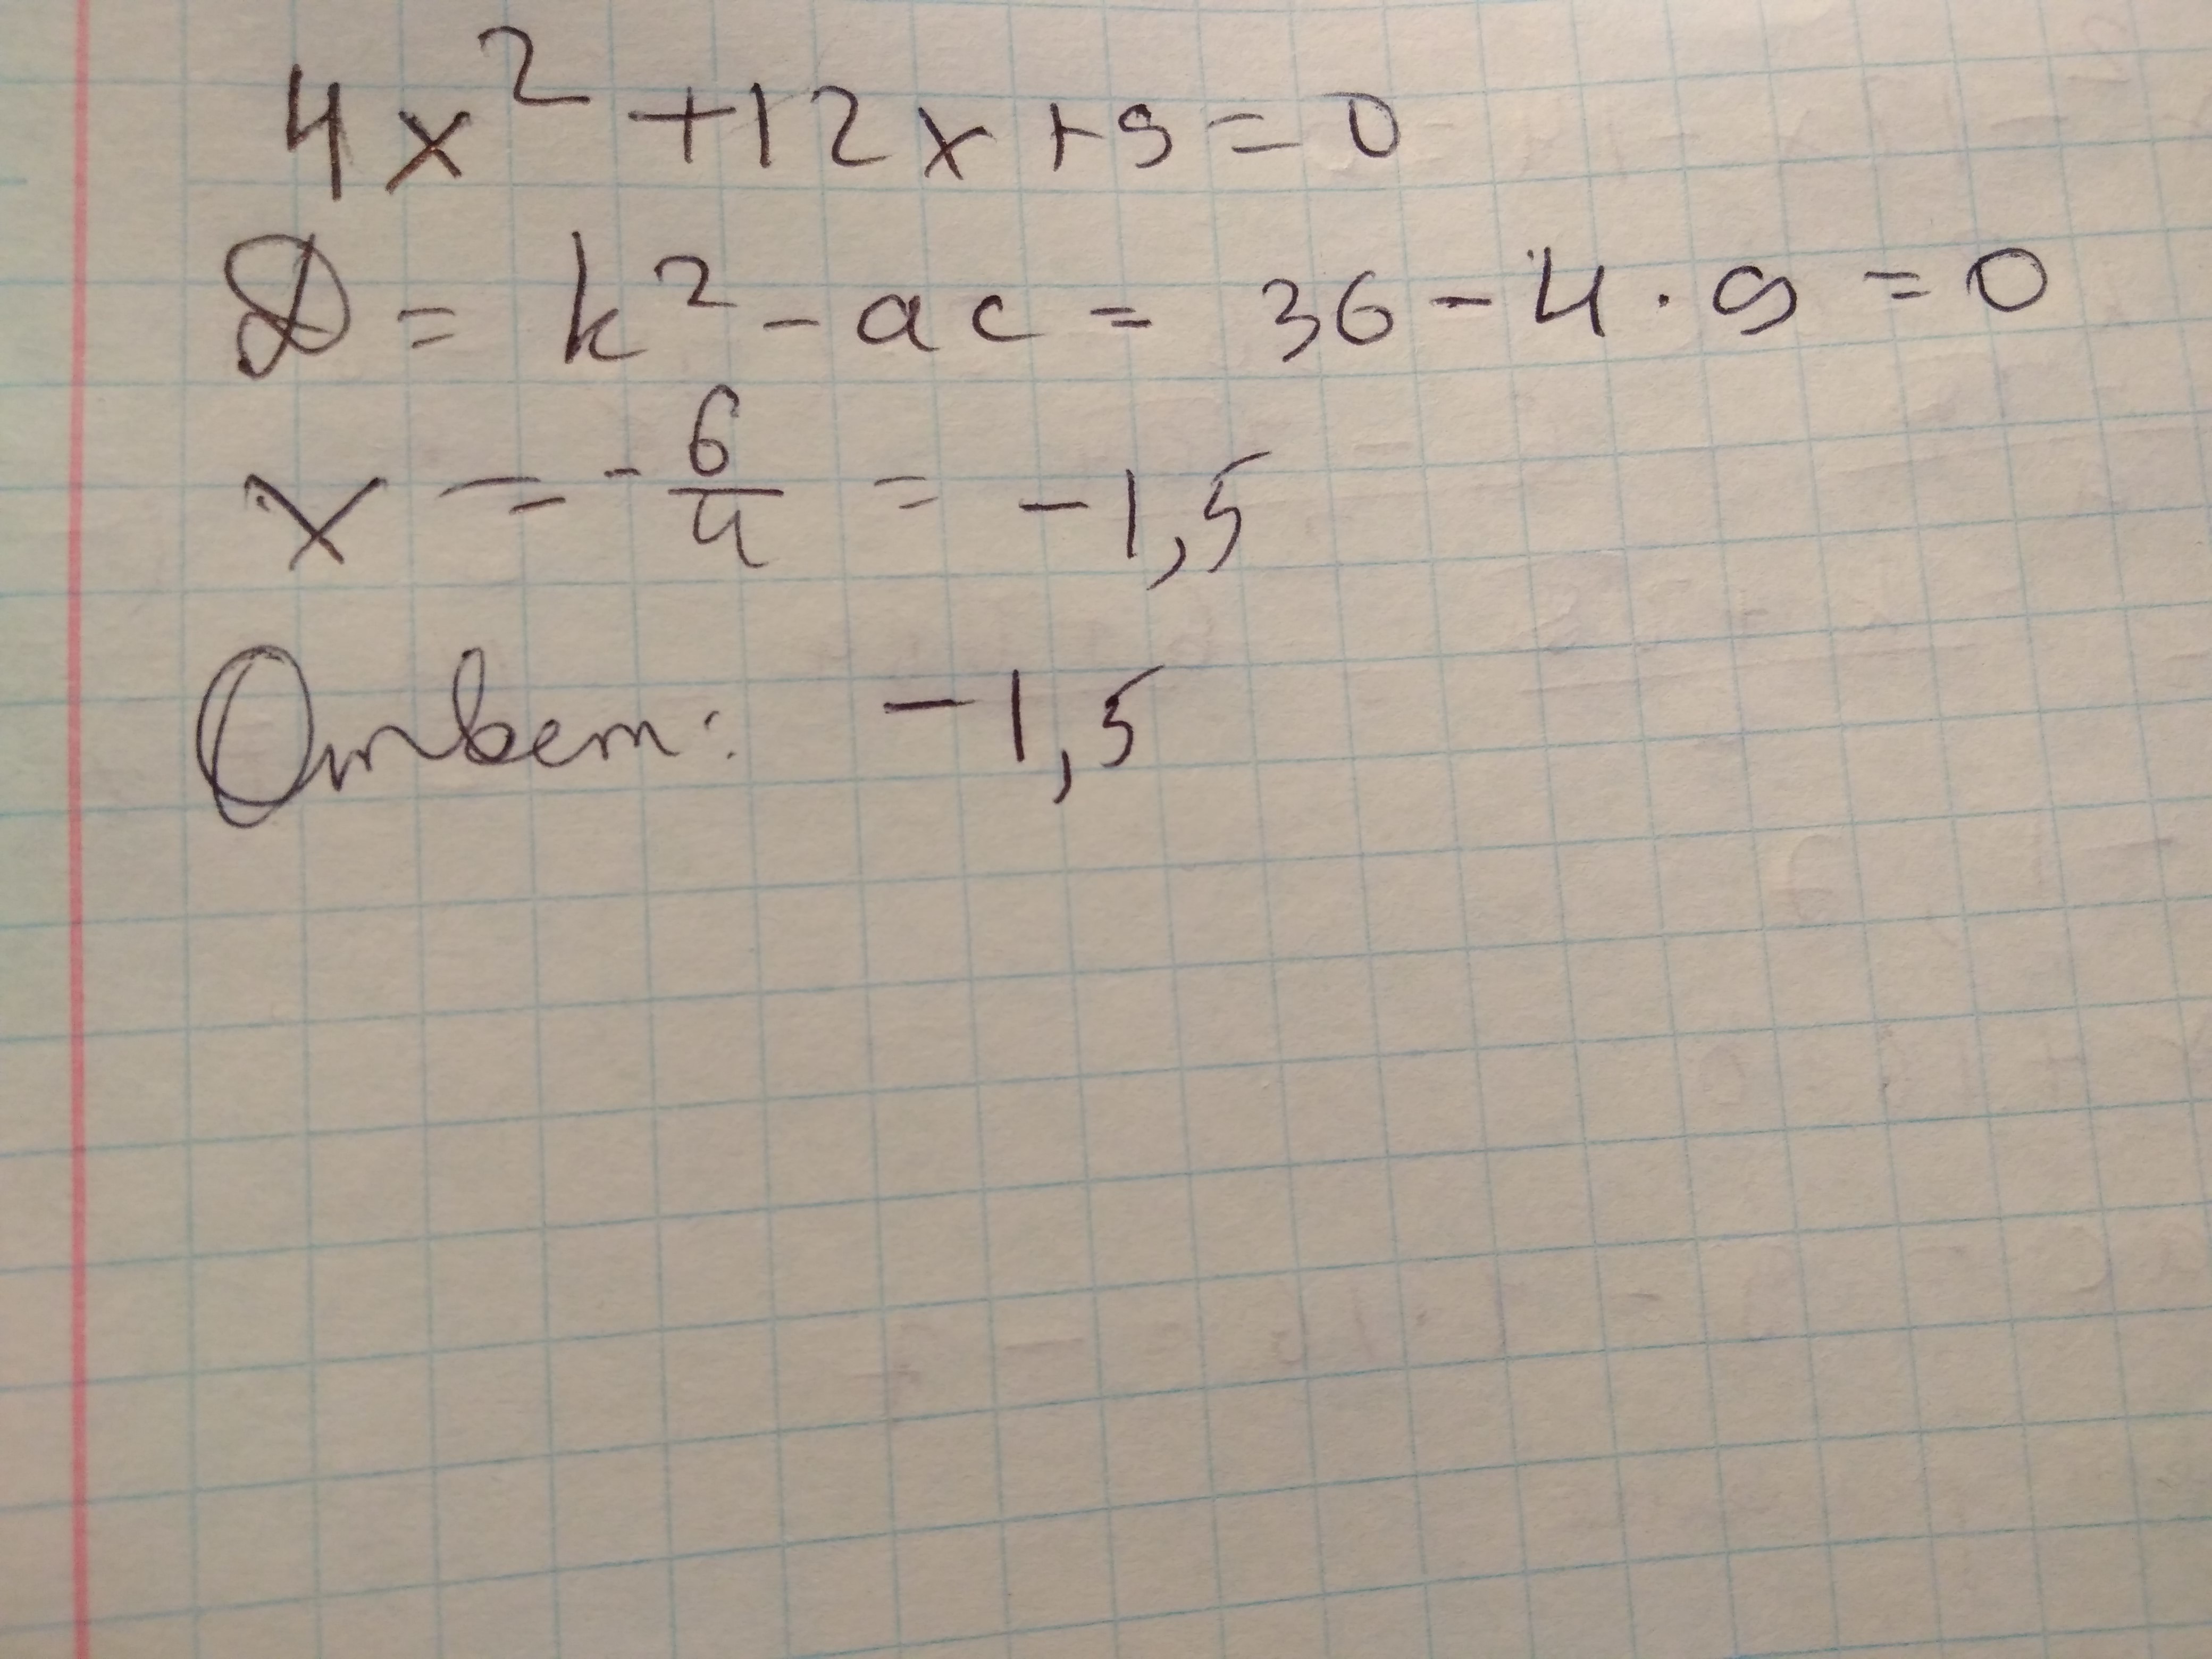 4x² + 12x + 9 = 0
D = k² - ac = 36 - 4 · 9 = 0
x = - 6/4 = -1,5
Ответ: -1,5